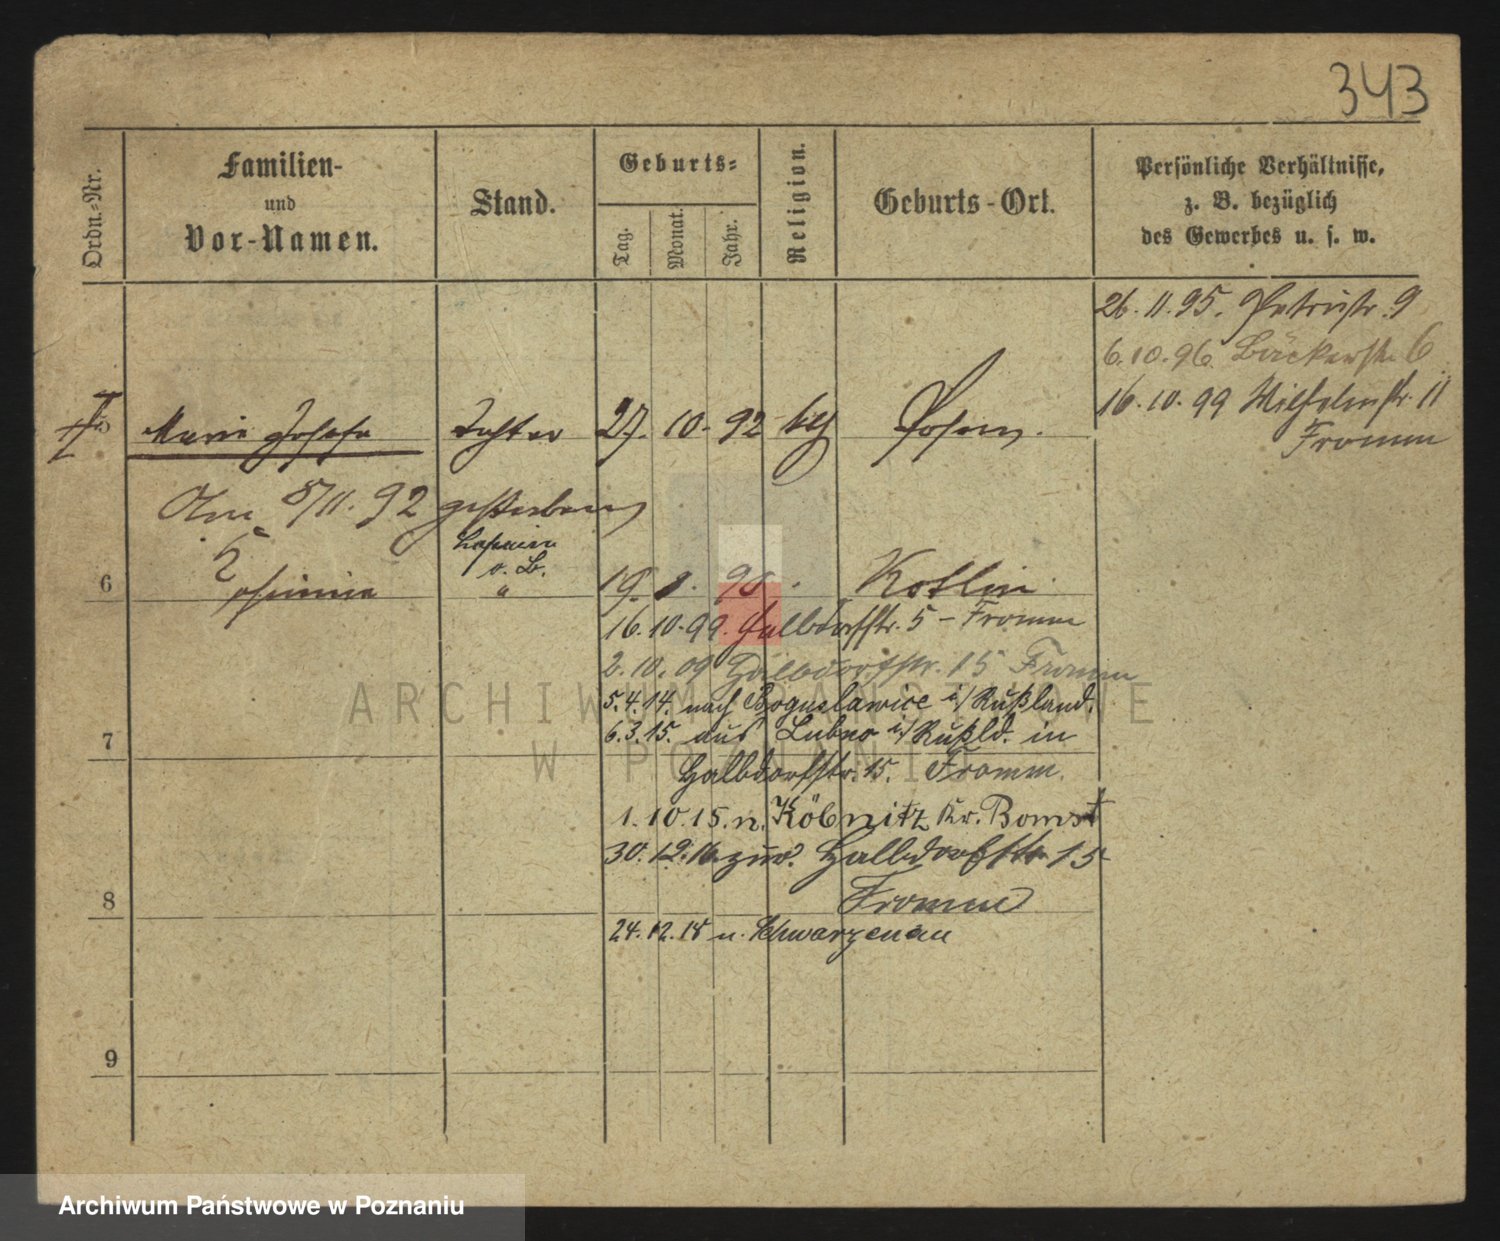 343
Ordn.-Nr.
Familien-
und
Vor-Namen.
Stand.
Geburts-
Tag.
Monat.
Jahr.
Religion.
Geburts-Ort.
Persönliche Verhältnisse,
z. B. bezüglich
des Gewerbes u. s. w.
26.11.95. Petristr. 9
6.10.96. Bäckerstr. 6
16.10.99 Wilhelmstr. 11
Fromm
Marie Josefa Tochter 27. 10. 92 Posen.
Am 8/11. 92 gestorben
6
19. 8. Kotlin
16.10.99. Halbdorfstr. 5 - Fromm
2.10.09 Halbdorfstr. 15 Fromm
5.4.14. nach Boguslawice i/ Rußland.
7
6.3.15. aus Lubno i/ Rußld. in
Halbdorfstr. 15. Fromm.
1.10.15. n. Köbnitz Kr. Bomst
30.12.16 zur. Halbdorfstr 15
8
Fromm
24.12.18 n. Schwarzenau
9
ARCHIWUM PAŃSTWOWE
W POZNANIU
Archiwum Państwowe w Poznaniu